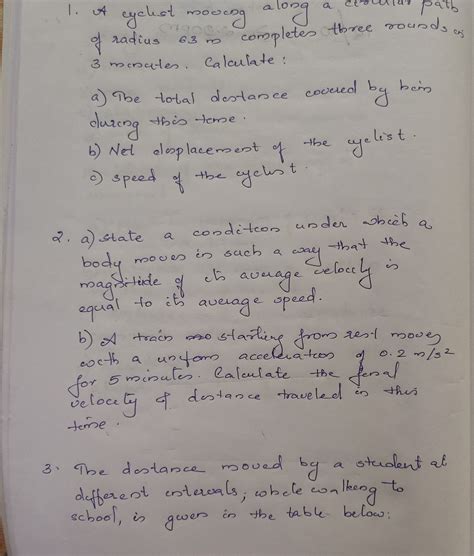 1. A cyclist moving along a circular path
of radius 63 m completes three rounds in
3 minutes. Calculate :
a) The total distance covered by him
during this time.
b) Net displacement of the cyclist.
c) speed of the cyclist.
2. a) State a condition under which a
body moves in such a way that the
magnitude of its average velocity is
equal to its average speed.
b) A train starting from rest moves
with a uniform acceleration of 0.2 m/s²
for 5 minutes. Calculate the final
velocity & distance traveled in this
time.
3. The distance moved by a student at
different intervals, while walking to
school, is given in the table below: